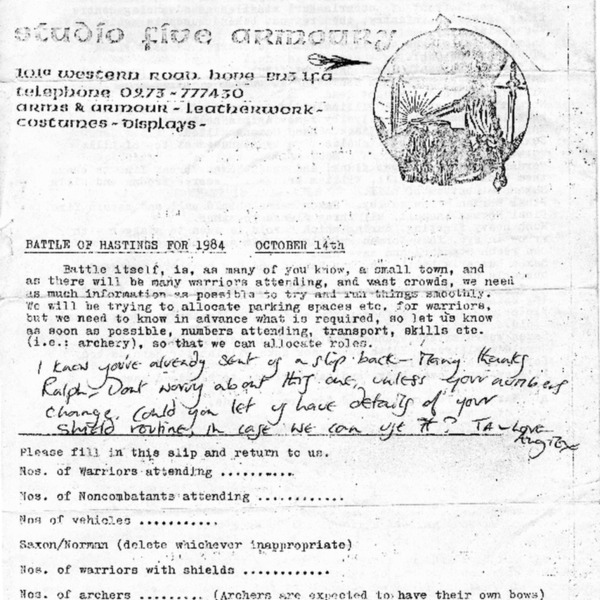 studio five armoury
101a western road. hove BN3 1FA
telephone 0273-777430
arms & armour - leatherwork -
costumes - displays -
BATTLE OF HASTINGS FOR 1984 OCTOBER 14th
Battle itself, is, as many of you know, a small town, and
as there will be many warriors attending, and vast crowds, we need
as much information as possible to try and run things smoothly.
We will be trying to allocate parking spaces etc. for warriors,
but we need to know in advance what is required, so let us know
as soon as possible, numbers attending, transport, skills etc.
(i.e.: archery), so that we can allocate roles.
I know you've already sent us a slip back - Many thanks
Ralph - Dont worry about this one, unless your numbers
change. Could you let us have details of your
shield routine, in case we can use it? TA - Love
Please fill in this slip and return to us.
Nos. of Warriors attending ..........
Nos. of Noncombatants attending ............
Nos of vehicles ...........
Saxon/Norman (delete whichever inappropriate)
Nos. of warriors with shields ............
Nos. of archers ......... (Archers are expected to have their own bows)